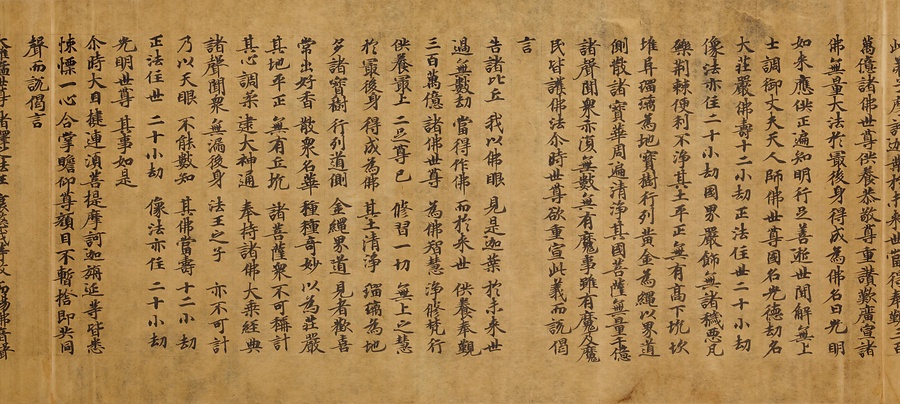 萬億諸佛世尊供養恭敬尊重讚歎廣宣諸
佛無量大法於最後身得成為佛名曰光明
如來應供正遍知明行足善逝世間解無上
士調御丈夫天人師佛世尊國名光德劫名
大莊嚴佛壽十二小劫正法住世二十小劫
像法亦住二十小劫國界嚴飾無諸穢惡瓦
礫荊棘便利不淨其土平正無有高下坑坎
堆阜瑠璃為地寶樹行列黃金為繩以界道
側散諸寶華周遍清淨其國菩薩無量千億
諸聲聞眾亦復無數無有魔事雖有魔及魔
民皆護佛法尒時世尊欲重宣此義而說偈
言
告諸比丘 我以佛眼 見是迦葉 於未來世
過無數劫 當得作佛 而於來世 供養奉覲
三百萬億 諸佛世尊 為佛智慧 淨修梵行
供養最上 二足尊已 修習一切 無上之慧
於最後身 得成為佛 其土清淨 瑠璃為地
多諸寶樹 行列道側 金繩界道 見者歡喜
常出好香 散眾名華 種種奇妙 以為莊嚴
其地平正 無有丘坑 諸菩薩眾 不可稱計
其心調柔 逮大神通 奉持諸佛 大乘經典
諸聲聞眾 無漏後身 法王之子 亦不可計
乃以天眼 不能數知 其佛當壽 十二小劫
正法住世 二十小劫 像法亦住 二十小劫
光明世尊 其事如是
尒時大目揵連湏菩提摩訶迦旃延等皆悉
悚慄一心合掌瞻仰尊顏目不暫捨即共同
聲而說偈言